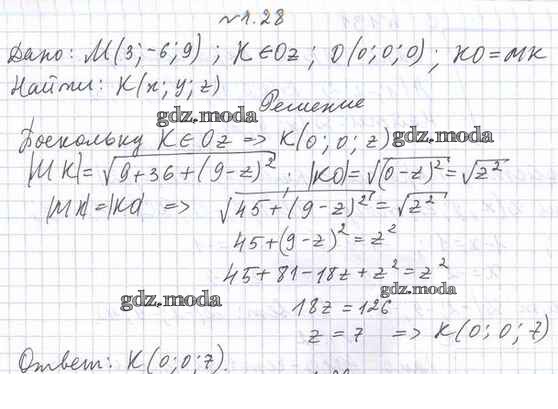 №1.28
Дано: M(3;-6;9); K∈Oz; O(0;0;0); KO=MK
Найти: K(x;y;z)
Решение
gdz.moda
Поскольку K∈Oz => K(0;0;z)
gdz.moda
|MK|=√(9+36+(9-z)²); |KO|=√((0-z)²)=√(z²)
|MK|=|KO| => √(45+(9-z)²)=√(z²)
45+(9-z)²=z²
45+81-18z+z²=z²
gdz.moda
gdz.moda
18z=126
z=7 => K(0;0;7)
Ответ: K(0;0;7).